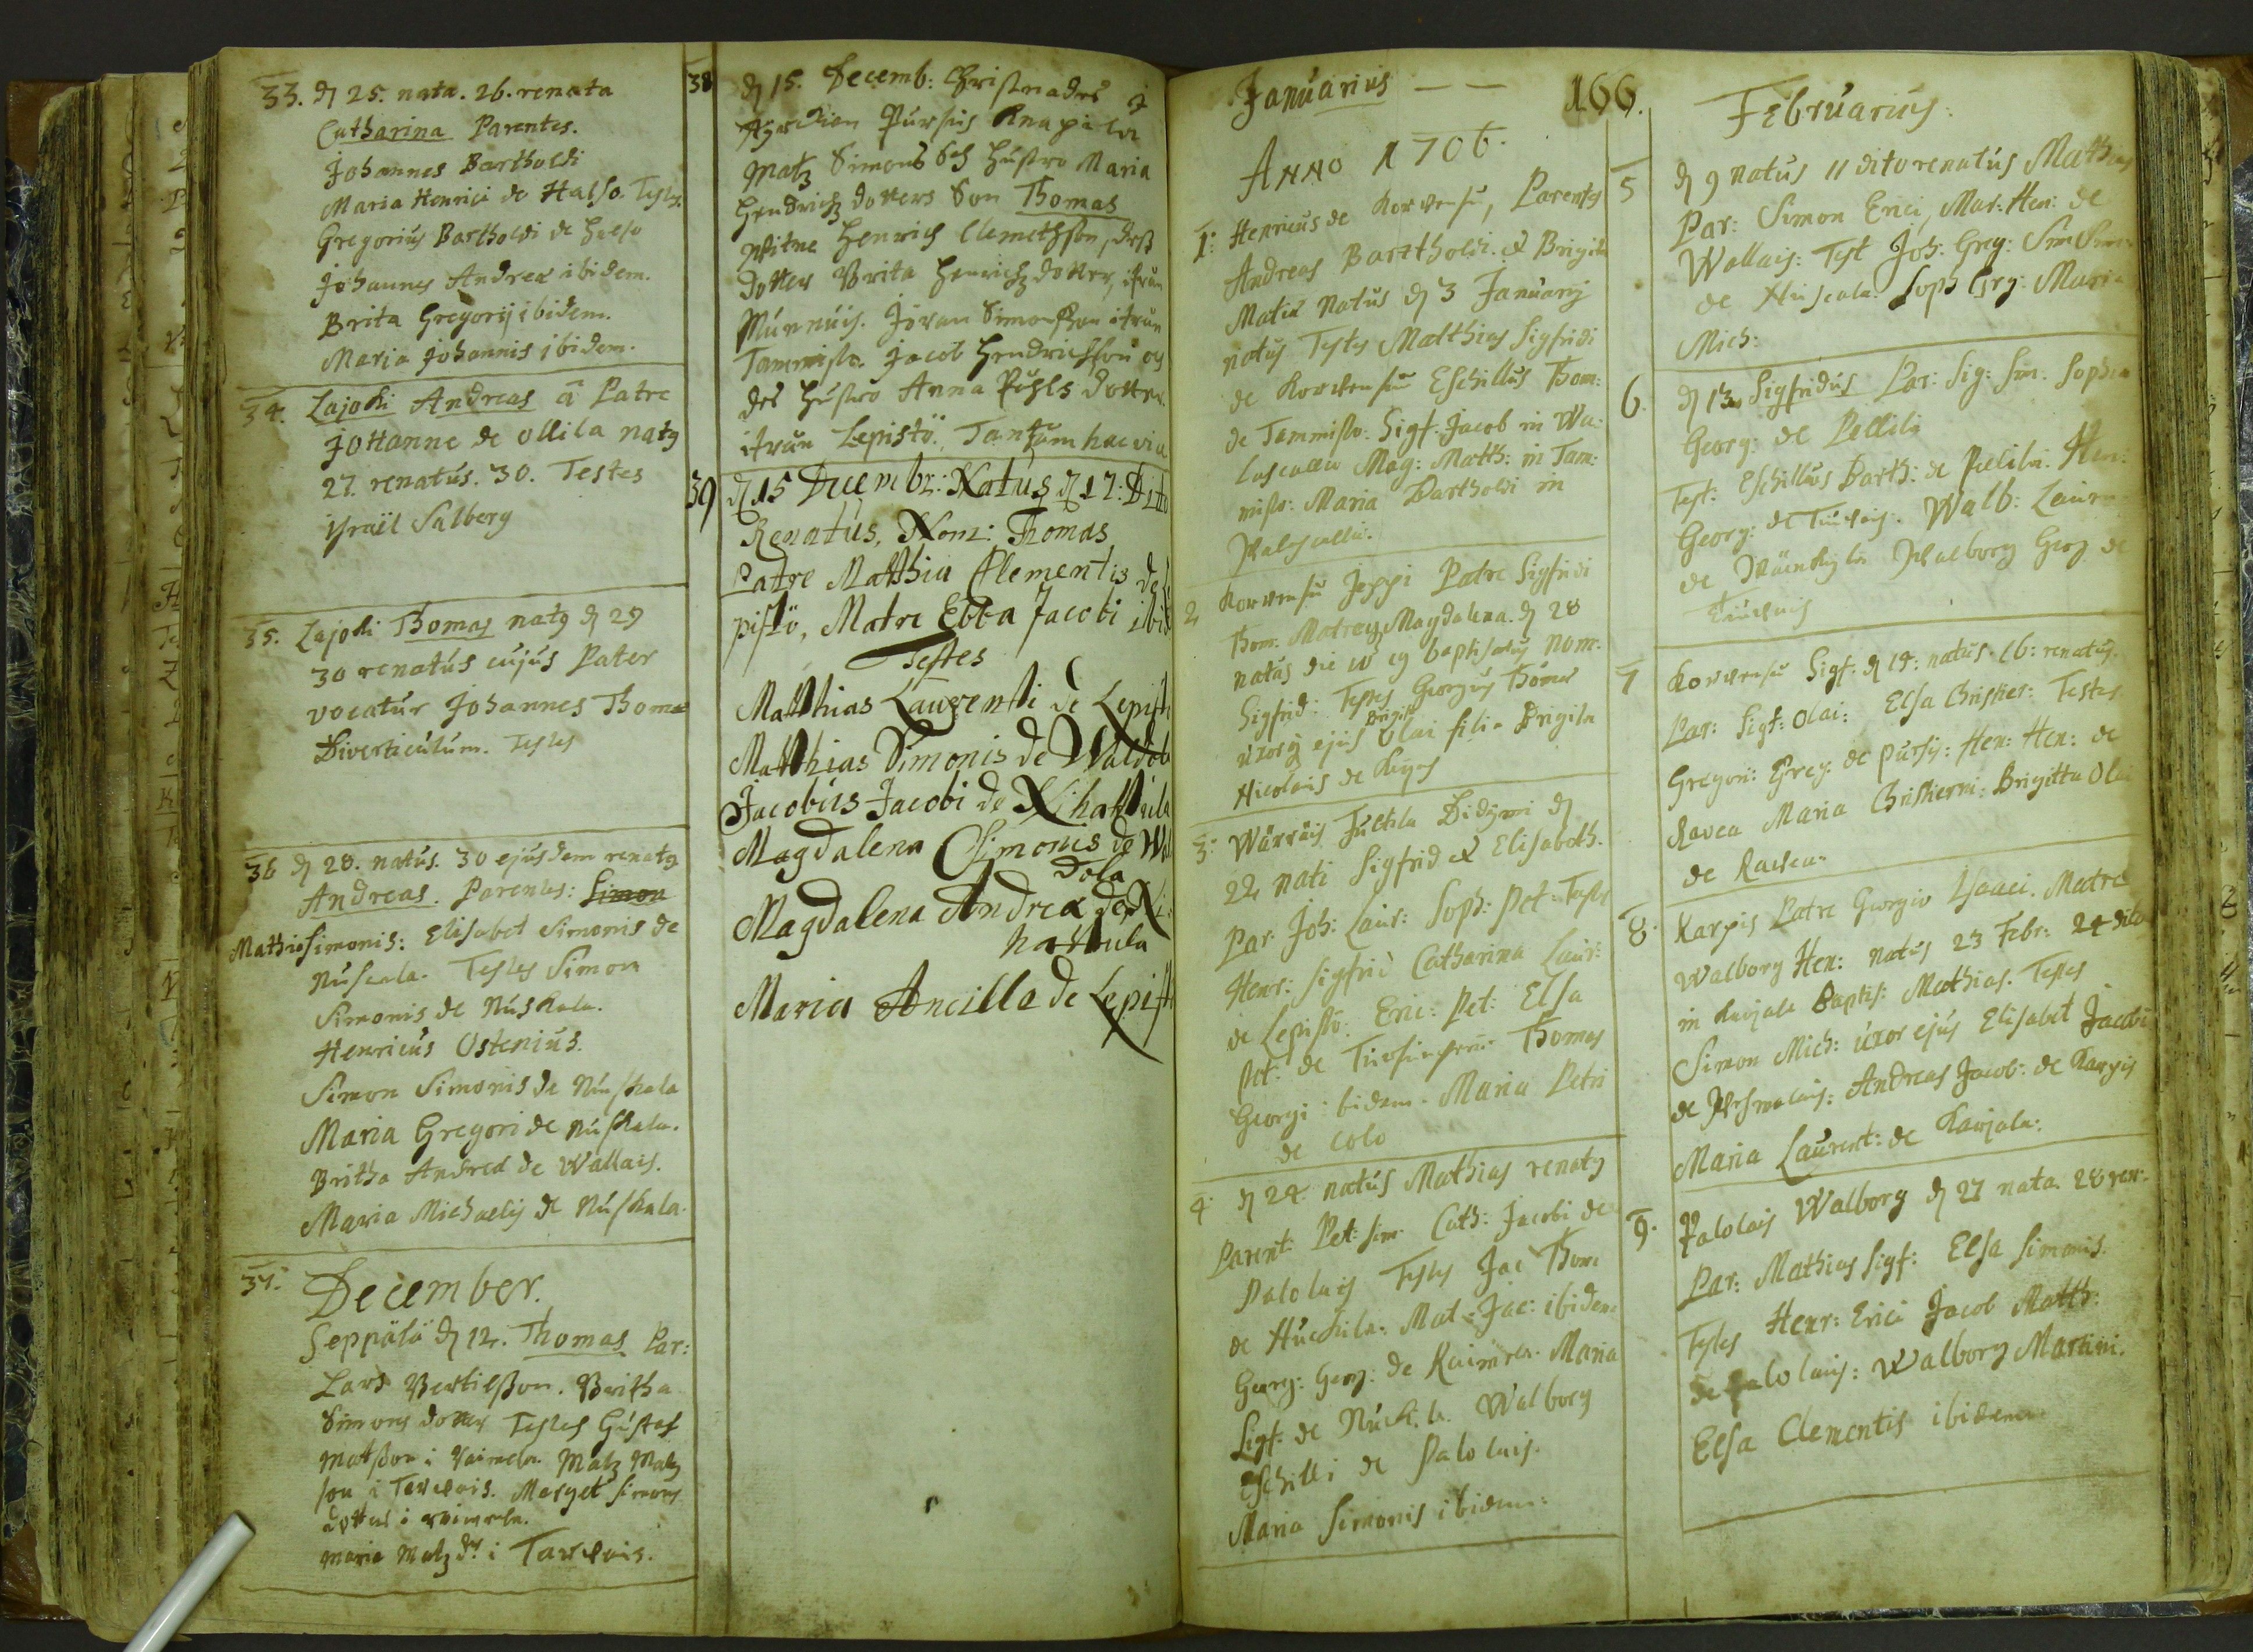 33. d 25. nata. 26. renata
Catharina Parentes.
Johannes Bartholdi
Maria Henrici de Halso. Testes.
Gregorius Bartholdi de Halso
Johannes Andreæ ibidem.
Brita Gregorij ibidem.
Maria Johannis ibidem.
34. Lajoki Andreas â Patre
Johanne de Ollila natg
27. renatús. 30. Testes
Israël Salberg
35. Lajoki Thomas natg d 29
30 renatús cujús Pater
vocatúr Johannes Thomæ
Diverticúlúm. Testes
36 d 28. natús. 30 ejúsdem renatg
Andreas. Parentes: Simon
Mathiæ Simonis: Elisabet Simonis de
Núscala. Testes Simon
Simonis de Núskala.
Henricús Ostenius.
Simon Simonis de Núskala
Maria Gregori de Núskala.
Britha Andreæ de Wallais.
Maria Michaelis de Núskala.
37. December.
Seppälä d 12. Thomas Par:
Lars Bertilsson. Britha
Simons dotter Testes Gústaf
Matsson i Raimela. Matz Matz
son i Tarvais. Marget Simons
dotter i
Maria Matz dr i Tarvais.
38 d 15. Decemb: Christnades
Pursus Knapila
Matz Simons och hústro Maria
Hendrichz dotters Son Thomas
Witne Henrich Clemethson, dess
dotter Brita Henrichz dotter, ifrån
Múnnúis. Jöran Simonsson ifrån
Tammisto. Jacob Hendrichsson och
des hústro Anna Påhls dotter
ifrån Lepistö. Tantum hac via
39 d 15 Decembr: Natús d 17: Dito
Renatús, Nom: Thomas
Patre Matthia Clementis de
pistö, Matre Ebba Jacobi ibid
Testes
Matthias Laurenti de Lepist
Matthias Simonis de Waldol
Jacobús Jacobi de Nihattula
Magdalena Simonis de Wal
dola
Magdalena Andreæ de Ni:
hattula
Maria Ancilla de Lepist
Januarius — — 166.
Anno 1706.
1: Henricus de Korvensu, Parentes
Andreas Bartholdi. & Brigita
Matiæ Natus d 3 Januarij
natus Testes Matthias Sigfridi
de Korvensu Eschillus Thom:
de Tammisto. Sigf: Jacob in Wa:
lascallu Mag: Matth: in Tam:
misto: Maria Bartholdi in
2 Korvensu Jeppi Patre Sigfridi
Thom. Matreg Magdalena. d 28
natus die baptisatus nom.
Sigfrid: Testes Georgius Thomæ
uxorg ejus Brigit Olai filia Brigita
Nicolais de
3: Wärräis Juttila Didymi d
22 nati Sigfrid & Elisabeth.
Par. Joh: Laur: Soph: Pet: Testes
Henr: Sigfrid Catharina Laur:
de Lepistö. Eric: Pet: Elsa
Pet: de Thomas
Georgi ibidem. Maria Petri
de Colo
4 d 24. natús Mathias renatg
Parent. Pet: Sim: Cath: Jacobi de
Palolais Testes Jac Thom
de Húckila: Mat: Jac: ibidem
Georg: Georg: de Raimela. Maria
Sigf. de Walborg
Eschilli de Palolais.
Maria Simonis ibidem:
Februarius.
5 d 9 natús 11 dito renatús Mathias
Par: Simon Erici, Mar: Hen: de
Wallais: Test Joh: Greg: Sim Sim
de Nuscala. Soph Grg: Maria
Mich:
6. d 13 Sigfridus Par: Sig: Sim. Sophia
Georg: de Pellila
Test: Eschillus Barth: de Pellila. Hen:
Georg: de Walb: Laur
de Walborg Georg de
7 Korvensu Sigf. d 14: natús. 16: renatús.
Par: Sigf: Olai: Elsa Christier: Testes
Gregori: Greg: de Pursu: Hen: Hen: de
Ravea Maria Christierni: Brigitta Olai
de Ravea.
8. Karpis Patre Georgio Isaaci. Matre
Walborg Hen: natus 23 Febr: 24 dito
in Karjala Baptis: Mathias. Testes
Simon Mich: úxor ejús Elisabet Jacobi
de Andreas Jacob: de Karpis
Maria Laurent: de Karjala:
9. Palolais Walborg d 27 nata. 28 ren:
Par: Mathias Sigf: Elsa Simonis.
Testes Henr: Erici Jacob Matth:
de Palolais: Walborg Martini.
Elsa Clementis ibidem